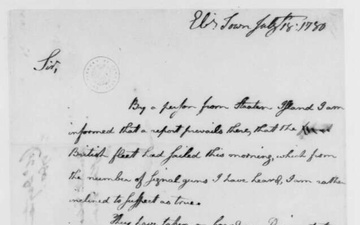 Eliz Town July 18. 1780
Sir,
By a person from Staten Island I am
informed that a report prevails there, that the
British fleet had sailed this morning, which from
the number of signal guns I have heard, I am rather
inclined to suspect as true.
They have taken